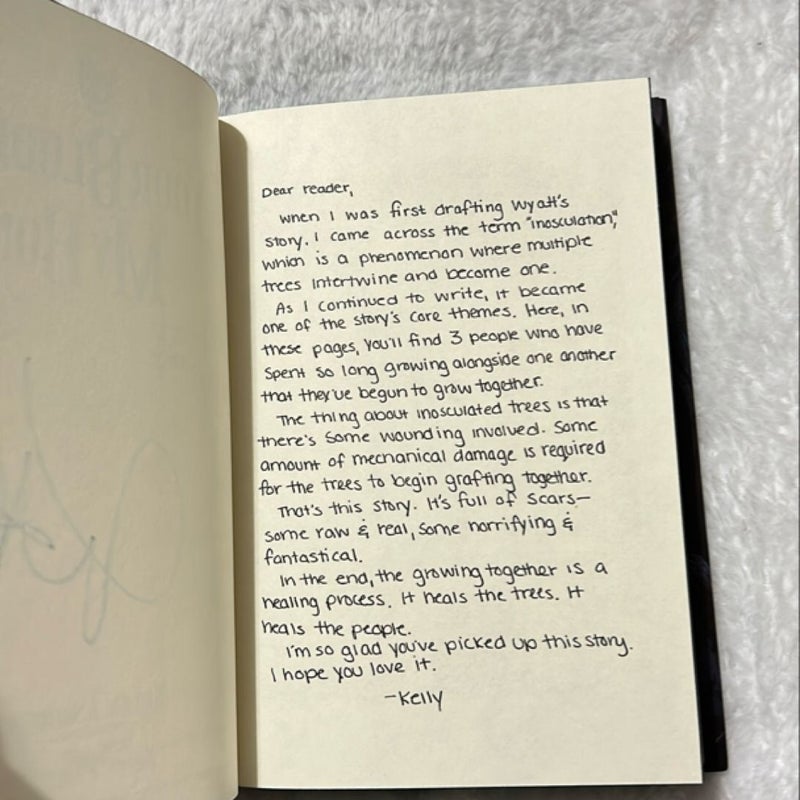 Dear reader,
When I was first drafting Wyatt's
story, I came across the term "inosculation,"
which is a phenomenon where multiple
trees intertwine and become one.
As I continued to write, it became
one of the story's core themes. Here, in
these pages, you'll find 3 people who have
spent so long growing alongside one another
that they've begun to grow together.
The thing about inosculated trees is that
there's some wounding involved. Some
amount of mechanical damage is required
for the trees to begin grafting together.
That's this story. It's full of scars—
some raw & real, some horrifying &
fantastical.
In the end, the growing together is a
healing process. It heals the trees. It
heals the people.
I'm so glad you've picked up this story.
I hope you love it.
-Kelly